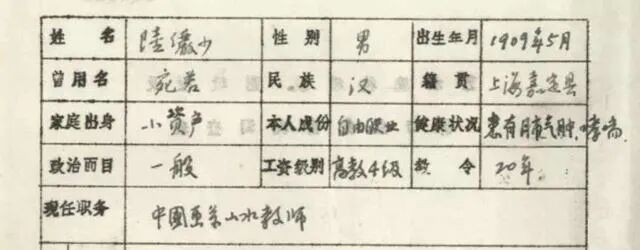 姓名 陸儼少 性别 男 出生年月 1909年5月
曾用名 宛若 民族 汉 籍贯 上海嘉定县
家庭出身 小资产 本人成份 自由职业 健康状况 患有肺气肿、哮喘
政治面目 一般 工资级别 高教4级 教令 20年
现任职务 中國画系山水教师